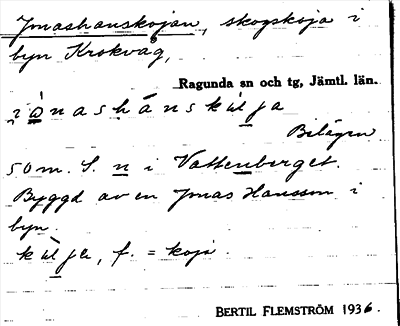 Jonashanskojan, skogskoja i
byn Krokvåg,
Ragunda sn och tg, Jämtl. län.
jònashánskɯlja
Bilägen
50 m. S. n i Vattenberget.
Byggd av en Jonas Hansson i
byn.
kɯ̀lja, f. = koja.
BERTIL FLEMSTRÖM 1936.